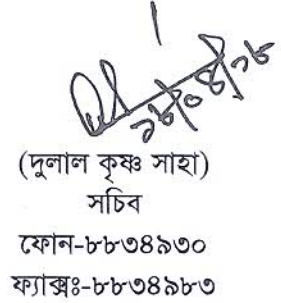 ১৮/০৪/১৮
(দুলাল কৃষ্ণ সাহা)
সচিব
ফোন-৮৮৩৪৯৩০
ফ্যাক্সঃ-৮৮৩৪৯৮৩